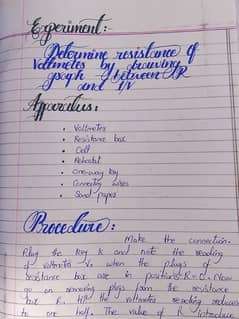 Experiment:-
Determine resistance of
Voltmeter by drawing
graph between R
and 1/V
Apparatus:
• Voltmeter
• Resistance box
• Cell
• Rehostat
• One-way key
• Connecting wires
• Sand paper
Procedure:
Make the connection.
Plug the key K and note the reading
of voltmeter V₀ when the plugs of
resistance box are in position R=0. Now
go on removing plugs from the resistance
box R, till the voltmeter reading reduces
to one half. The value of R introduce